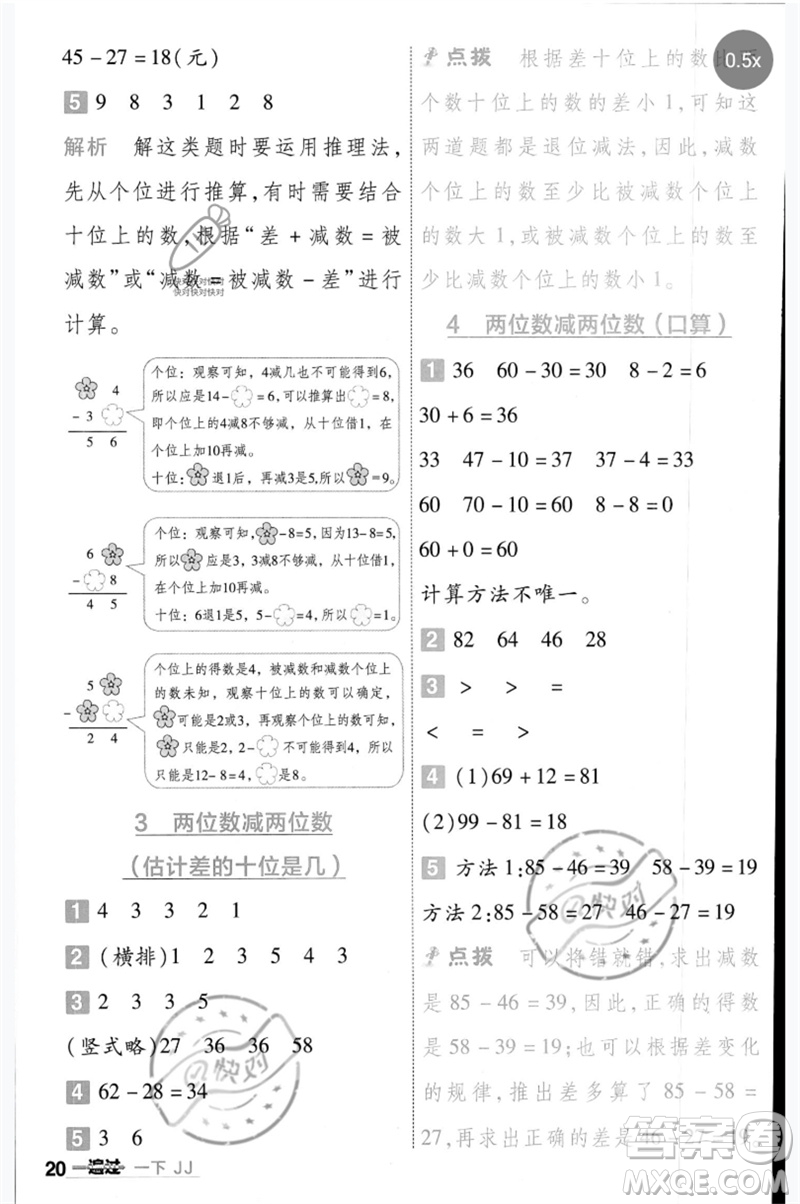 45－27＝18(元)
5 9 8 3 1 2 8
解析 解这类题时要运用推理法,
先从个位进行推算,有时需要结合
十位上的数,根据“差＋减数＝被
减数”或“减数＝被减数－差”进行
计算。
快对快对快对快对
快对快对快对
4
－3
5 6
个位：观察可知，4减几也不可能得到6，
所以应是14－＝6，可以推算出＝8，
即个位上的4减8不够减，从十位借1，在
个位上加10再减。
十位：退1后，再减3是5，所以＝9。
6
－ 8
4 5
个位：观察可知，－8＝5，因为13－8＝5，
所以应是3，3减8不够减，从十位借1，
在个位上加10再减。
十位：6退1是5，5－＝4，所以＝1。
5
－
2 4
个位上的得数是4，被减数和减数个位上
的数未知，观察十位上的数可以确定，
可能是2或3，再观察个位上的数可知，
只能是2，2－不可能得到4，所以
只能是12－8＝4，是8。
3 两位数减两位数
（估计差的十位是几）
1 4 3 3 2 1
2 (横排)1 2 3 5 4 3
3 2 3 3 5
(竖式略)27 36 36 58
4 62－28＝34
5 3 6
20 一遍过 一下 JJ
点拨 根据差十位上的数比两
个数十位上的数的差小1,可知这
两道题都是退位减法,因此,减数
个位上的数至少比被减数个位上的
数大1,或被减数个位上的数至
少比减数个位上的数小1。
0.5x
4 两位数减两位数（口算）
1 36 60－30＝30 8－2＝6
30＋6＝36
33 47－10＝37 37－4＝33
60 70－10＝60 8－8＝0
60＋0＝60
计算方法不唯一。
2 82 64 46 28
3 ＞ ＞ ＝
＜ ＝ ＞
4 (1)69＋12＝81
(2)99－81＝18
5 方法1:85－46＝39 58－39＝19
方法2:85－58＝27 46－27＝19
点拨 可以将错就错,求出减数
是85－46＝39,因此,正确的得数
是58－39＝19;也可以根据差变化
的规律,推出差多算了85－58＝
27,再求出正确的差是46－27＝19
@快对
@快对
答案圈
MXQE.COM